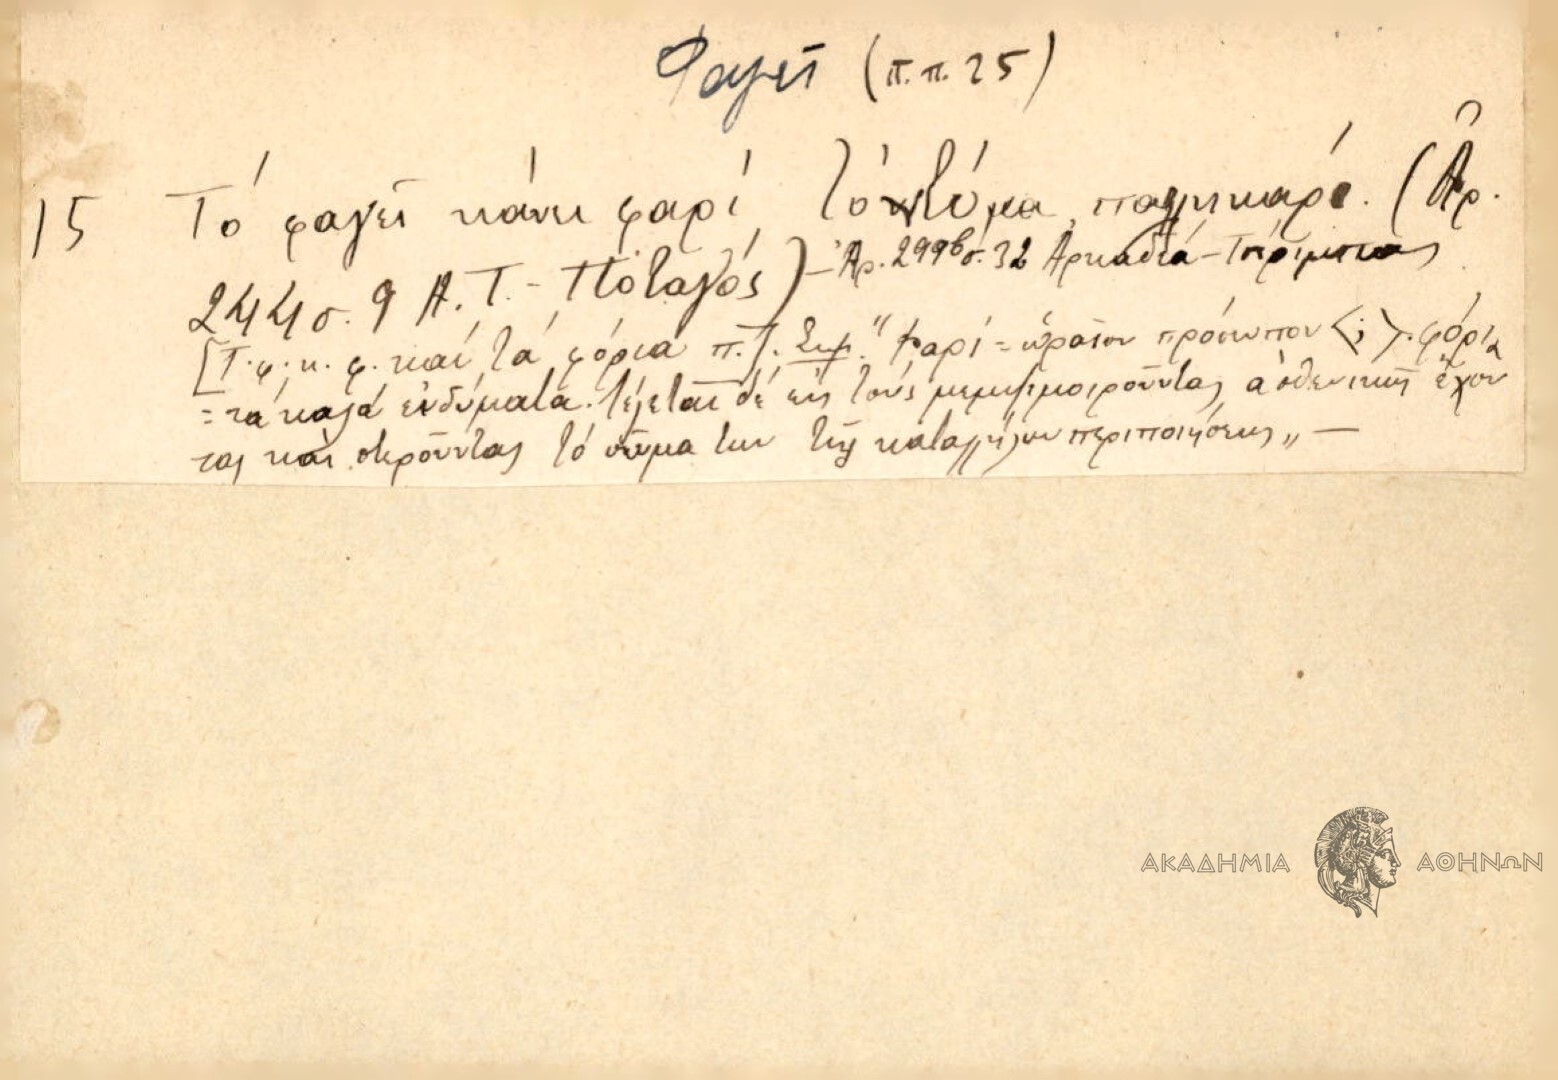 Φαγεῖ (π.π. 25)
15 Τό φαγεῖ κάνει φαρί τό ντύμα παλληκάρι. (Ἀρ.
244 σ. 9 Α. Τ. - Ποταγός) - Ἀρ. 299β σ. 32 Ἀρκαδία -
[Τ. φ. κ. φ. καί τά φόρια π.]. Σημ. "φαρί = ὡραῖον πρόσωπον <;>. φόρια
= τά καλά ἐνδύματα. λέγεται δέ εἰς τούς μεμψιμοιροῦντας, ἀσθενικῶς ἔχον
τας καί στεροῦντας τό σῶμα των τῆς καταλλήλου περιποιήσεως„ —
ΑΚΑΔΗΜΙΑ ΑΘΗΝΩΝ